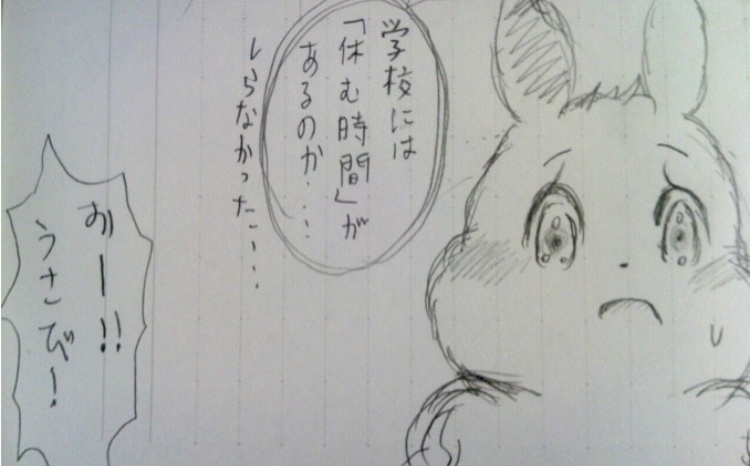 学校には
「休む時間」が
あるのか…
しらなかった…
おー!!
うさぴー!